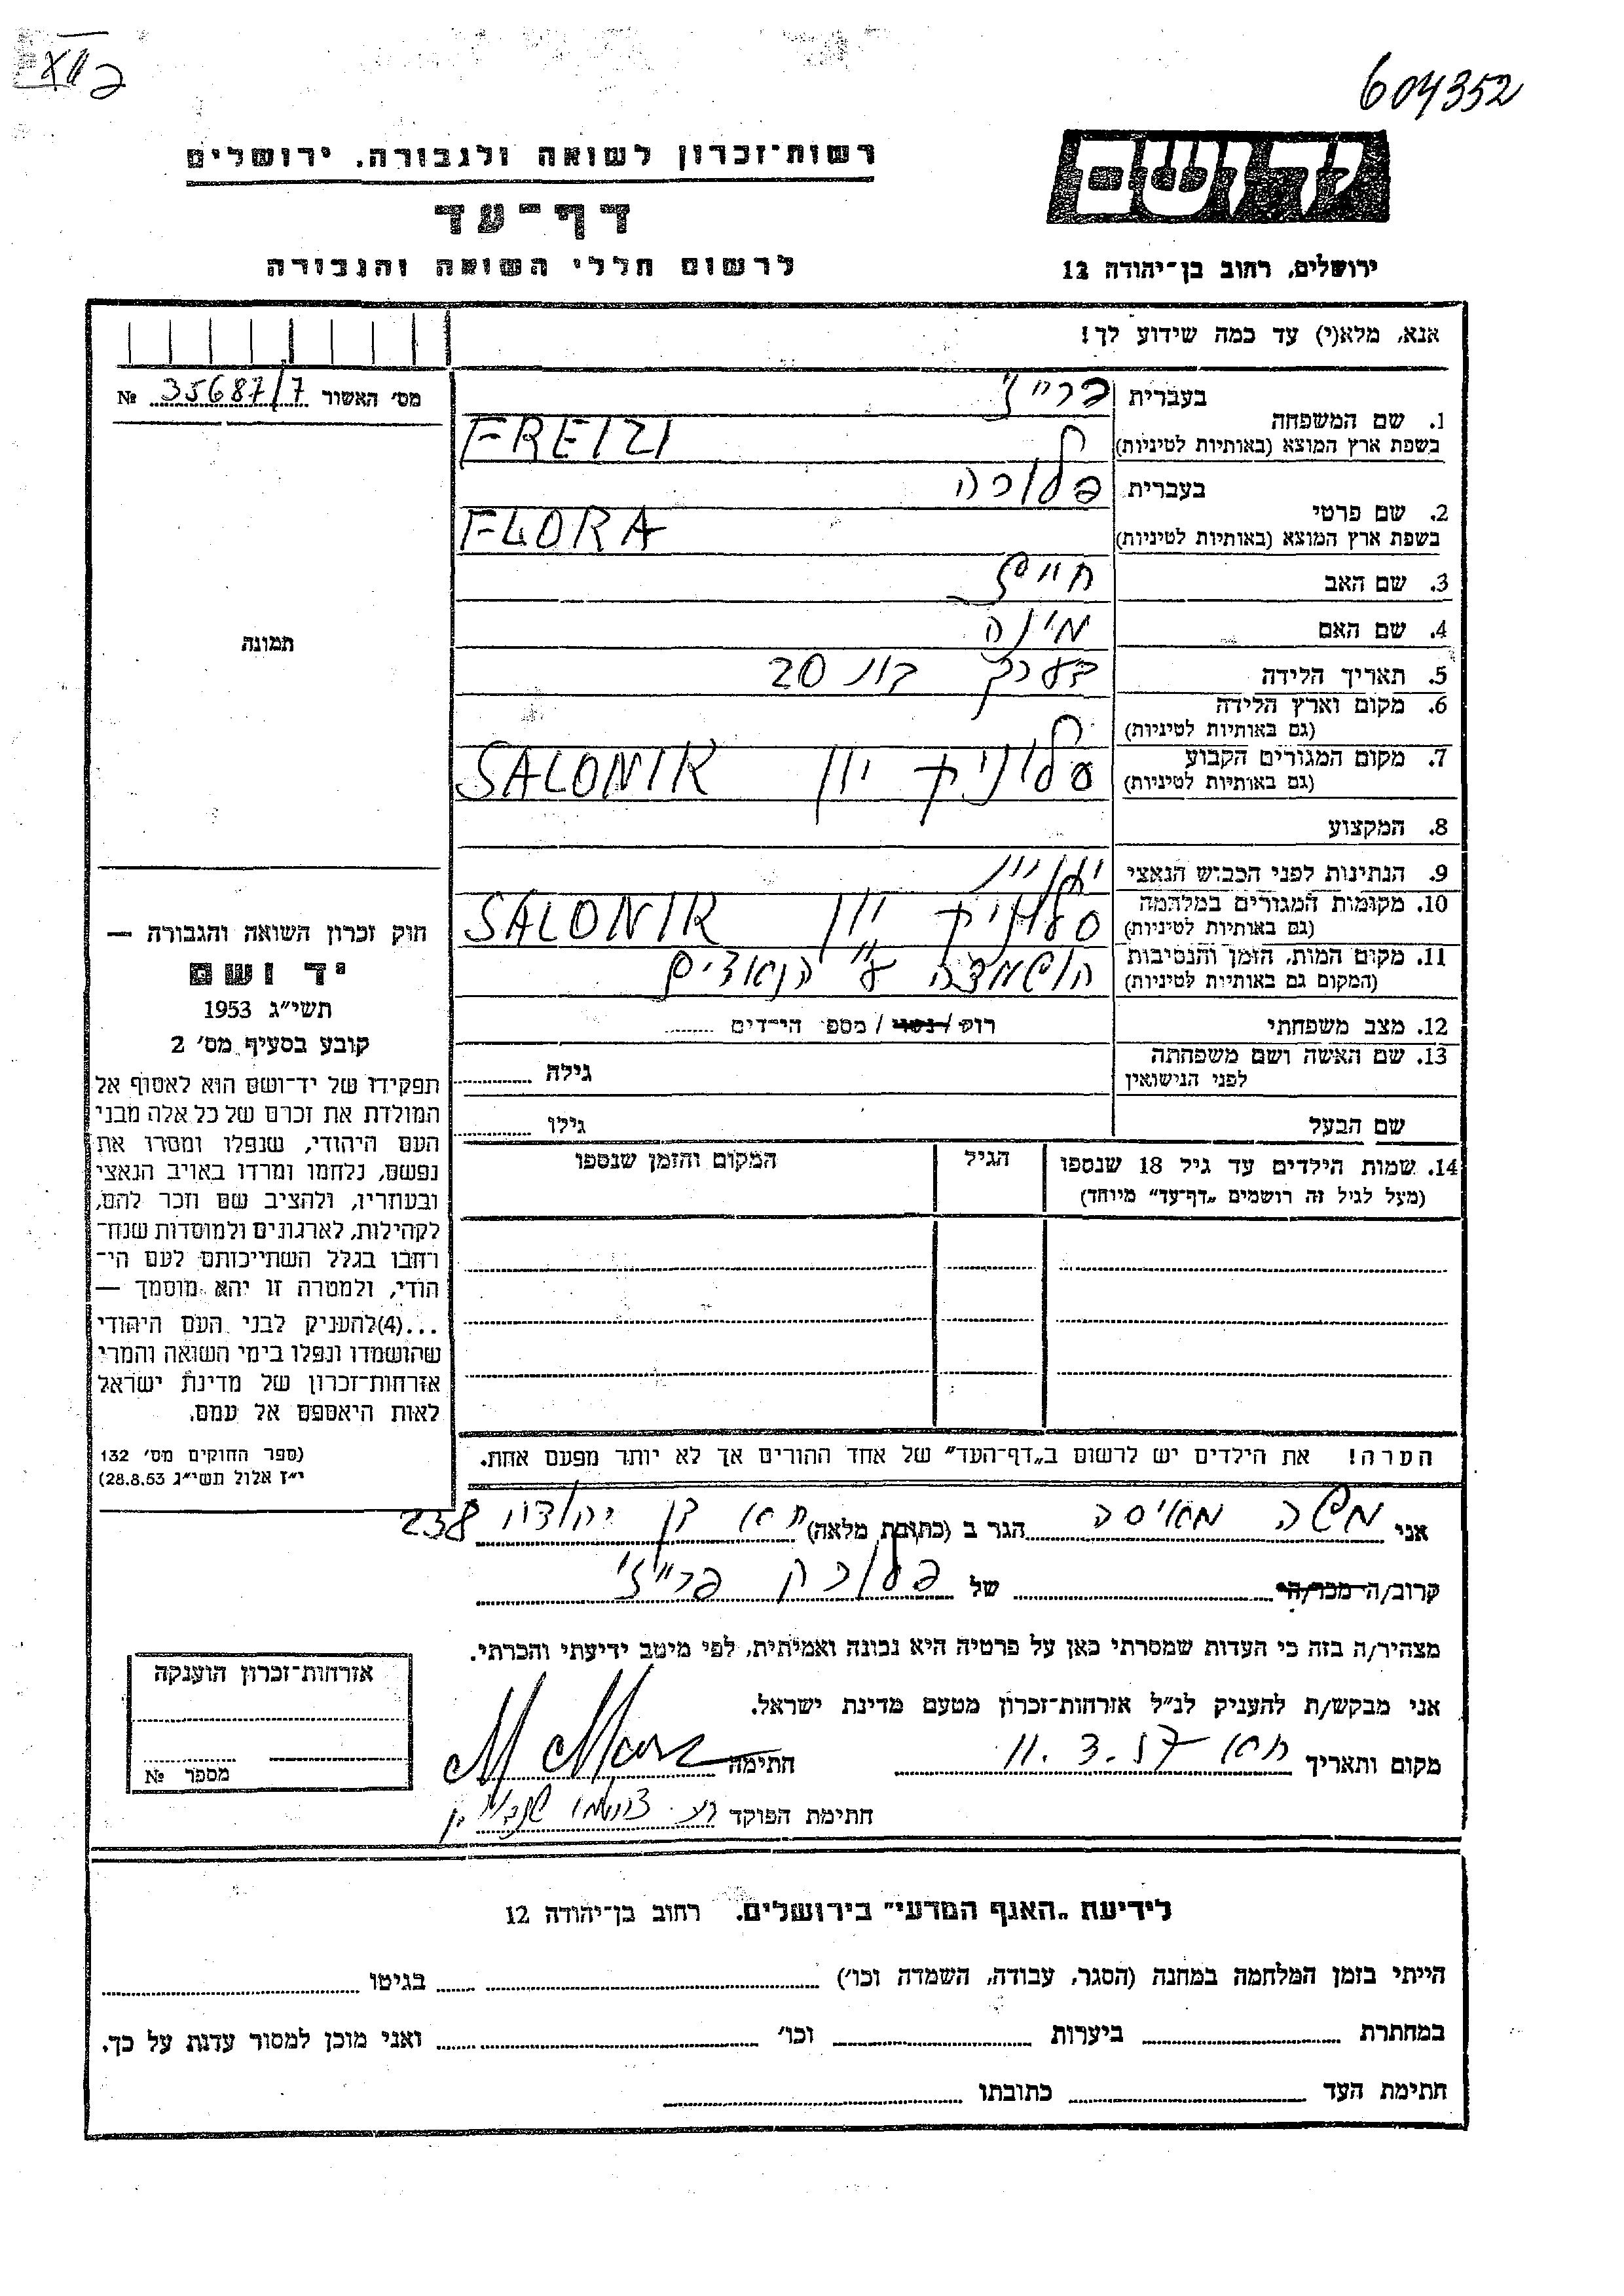 604352
רשות־זכרון לשואה ולגבורה. ירושלים
יד ושם
דף־עד
לרשום חללי השואה והגבורה
ירושלים, רחוב בן־יהודה 12
אנא, מלא(י) עד כמה שידוע לך!
מס׳ האשור 35687/7 №
1. שם המשפחה
בעברית פרייזי
בשפת ארץ המוצא (באותיות לטיניות) FREIZI
2. שם פרטי
בעברית פלורה
בשפת ארץ המוצא (באותיות לטיניות) FLORA
3. שם האב חיים
4. שם האם מינה
5. תאריך הלידה בערך בת 20
6. מקום וארץ הלידה
(גם באותיות לטיניות)
7. מקום המגורים הקבוע
(גם באותיות לטיניות) סלוניקי יון SALONIK
8. המקצוע
9. הנתינות לפני הכבוש הנאצי
10. מקומות המגורים במלחמה
(גם באותיות לטיניות) סלוניקי יון SALONIK
11. מקום המות, הזמן והנסיבות
(המקום גם באותיות לטיניות) הושמדה ע״י הנאצים
12. מצב משפחתי רווק / נשוי / מספר הילדים
13. שם האשה ושם משפחתה
לפני הנישואין
גילה
שם הבעל גילו
14. שמות הילדים עד גיל 18 שנספו הגיל המקום והזמן שנספו
(מעל לגיל זה רושמים „דף־עד״ מיוחד)
הערה! את הילדים יש לרשום ב„דף־העד״ של אחד ההורים אך לא יותר מפעם אחת.
תמונה
חוק זכרון השואה והגבורה —
יד ושם
תשי״ג 1953
קובע בסעיף מס׳ 2
תפקידו של יד־ושם הוא לאסוף אל
המולדת את זכרם של כל אלה מבני
העם היהודי, שנפלו ומסרו את
נפשם, נלחמו ומרדו באויב הנאצי
ובעוזריו, ולהציב שם וזכר להם,
לקהילות, לארגונים ולמוסדות שנח־
רבו בגלל השתייכותם לעם הי־
הודי, ולמטרה זו יהא מוסמך —
...(4)להעניק לבני העם היהודי
שהושמדו ונפלו בימי השואה והמרי
אזרחות־זכרון של מדינת ישראל
לאות היאספם אל עמם.
(ספר החוקים מס׳ 132
י״ז אלול תשי״ג 28.8.53)
אני משה הגר ב (כתובת מלאה) ת״א בן יהודה 238
קרוב/ה מכר/ה של פלורה פרייזי
מצהיר/ה בזה כי העדות שמסרתי כאן על פרטיה היא נכונה ואמיתית, לפי מיטב ידיעתי והכרתי.
אני מבקש/ת להעניק לנ״ל אזרחות־זכרון מטעם מדינת ישראל.
מקום ותאריך ת״א 11.3.57 חתימה
חתימת הפוקד
אזרחות־זכרון הוענקה
מספר №
לידיעת „האגף המדעי״ בירושלים. רחוב בן־יהודה 12
הייתי בזמן המלחמה במחנה (הסגר, עבודה, השמדה וכו׳) בגיטו
במחתרת ביערות וכו׳ ואני מוכן למסור עדות על כך.
חתימת העד כתובתו